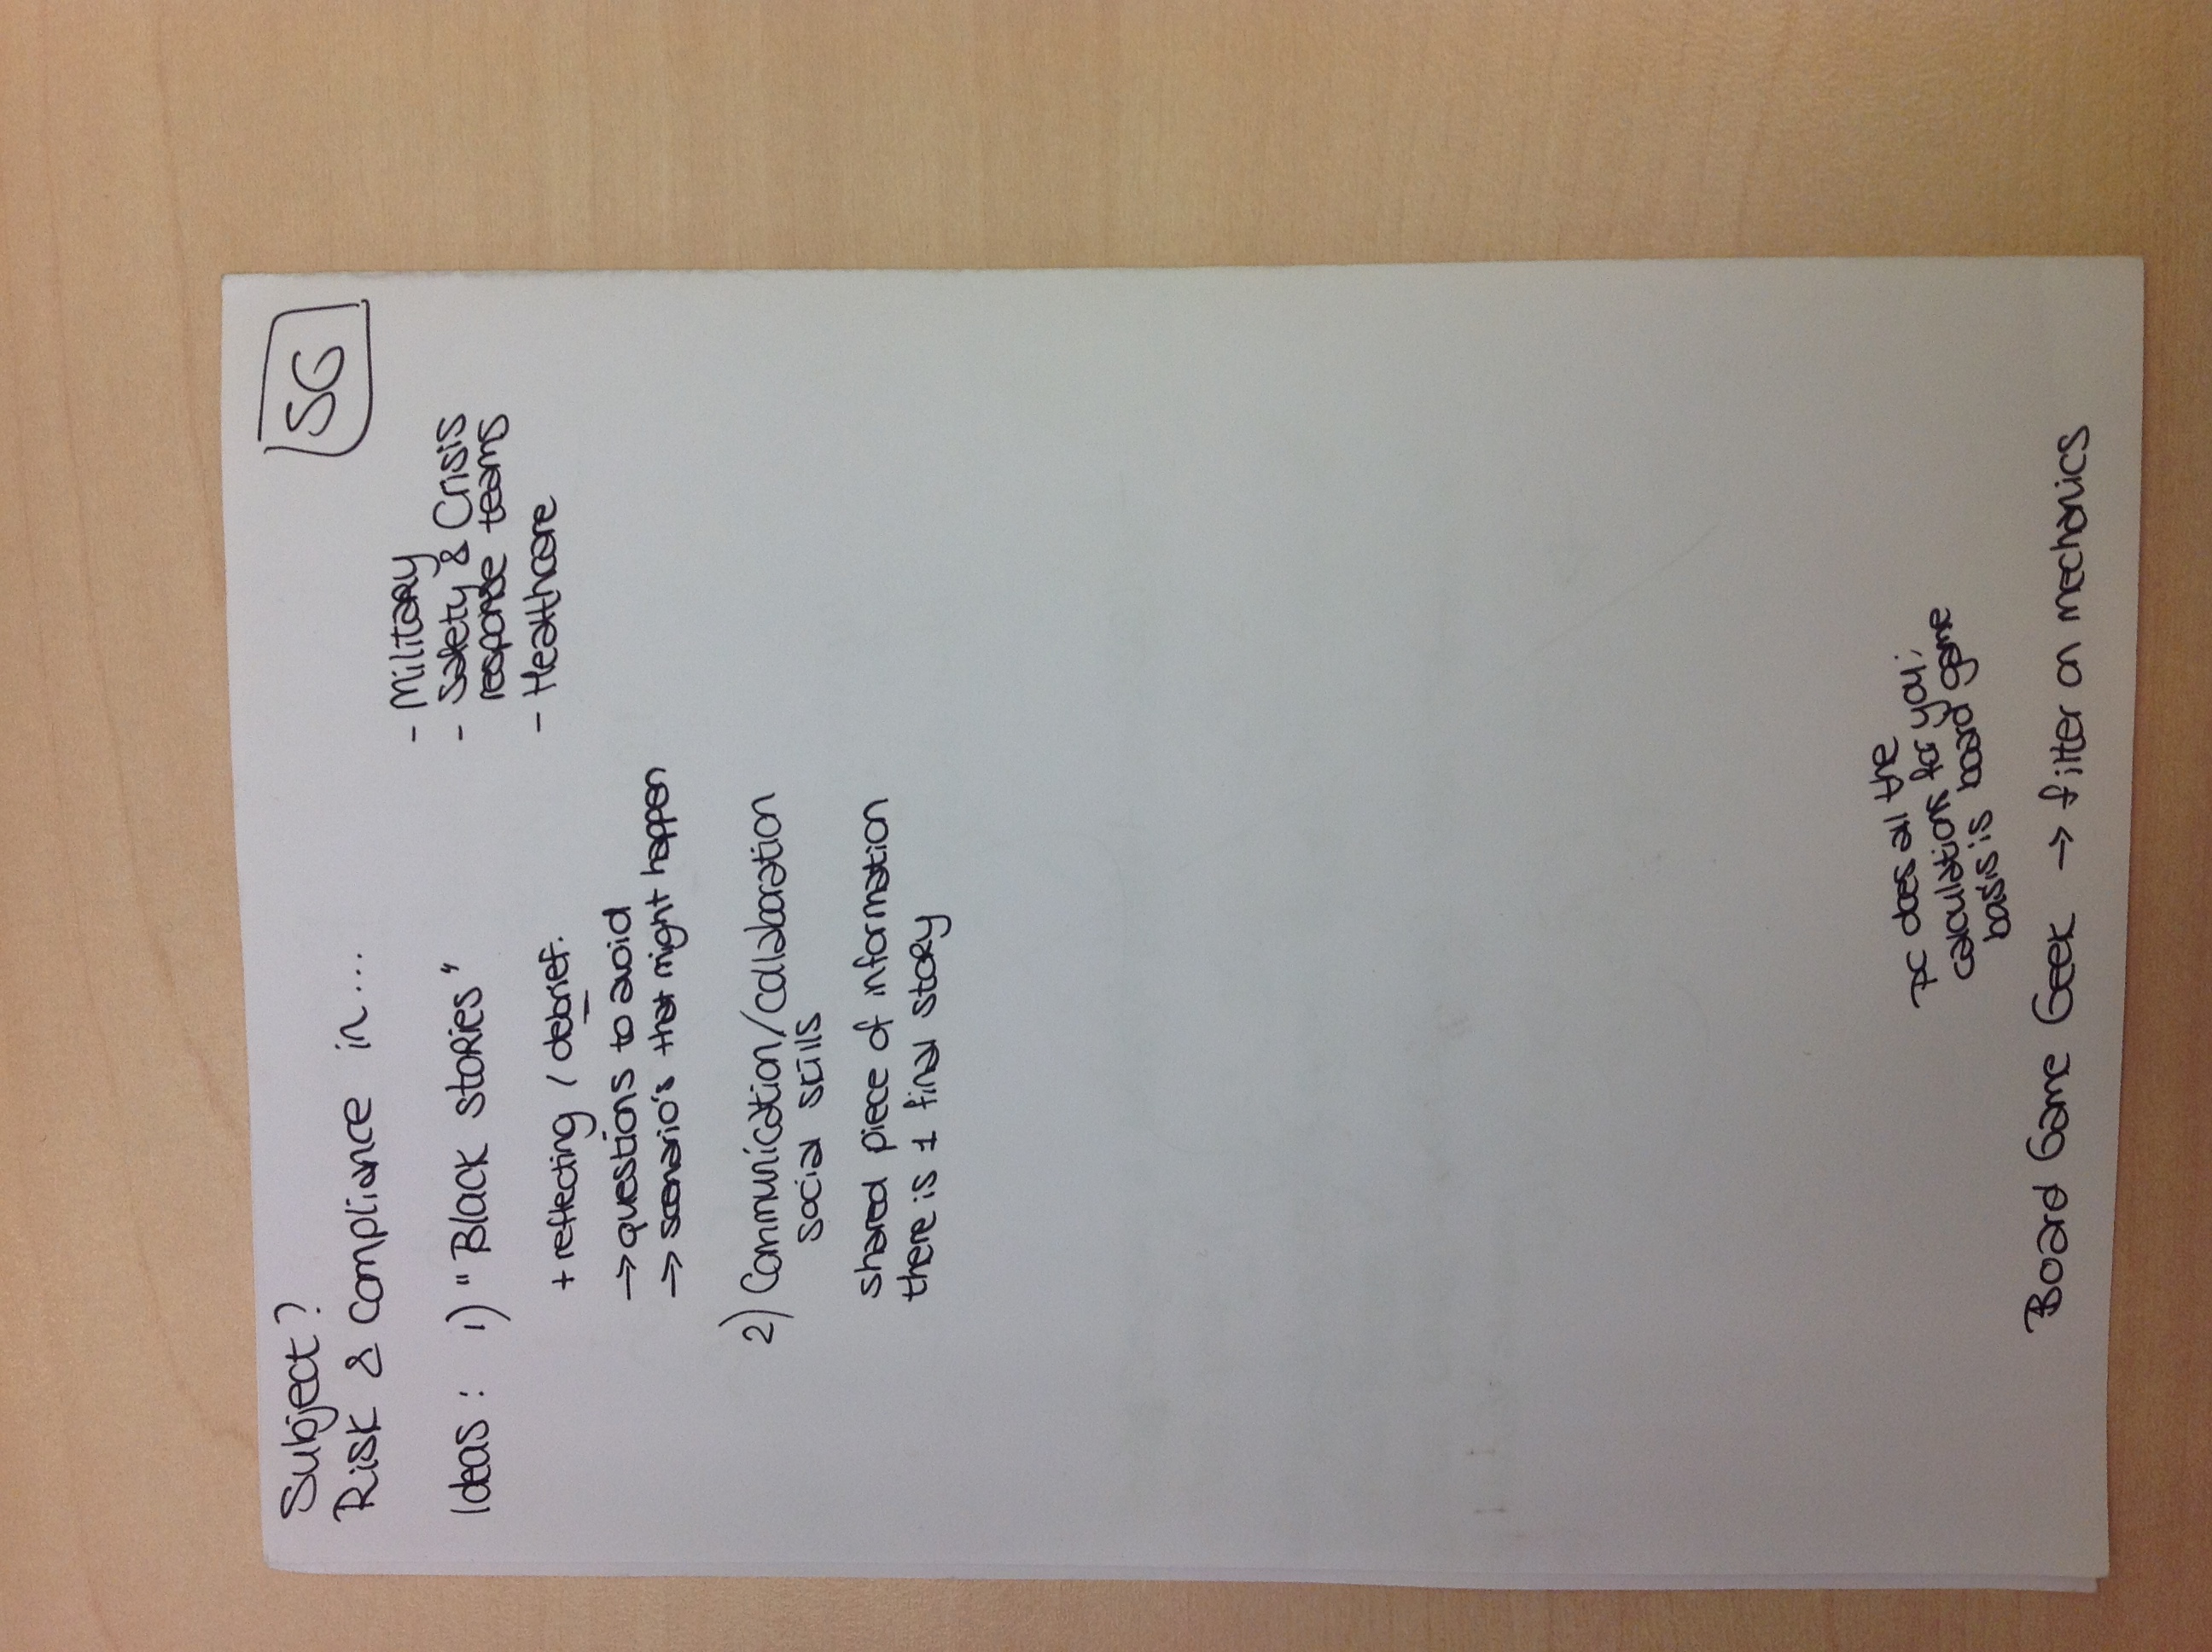 Subject?
SG
Risk & compliance in...
- Military
- Safety & Crisis
response teams
- Healthcare
Ideas: 1) "Black stories"
+ reflecting / debrief.
→ questions to avoid
→ scenario's that might happen
2) Communication/collaboration
social skills
shared piece of information
there is 1 final story
PC does all the
calculations for you;
basis is board game
Board Game Geek → filter on mechanics